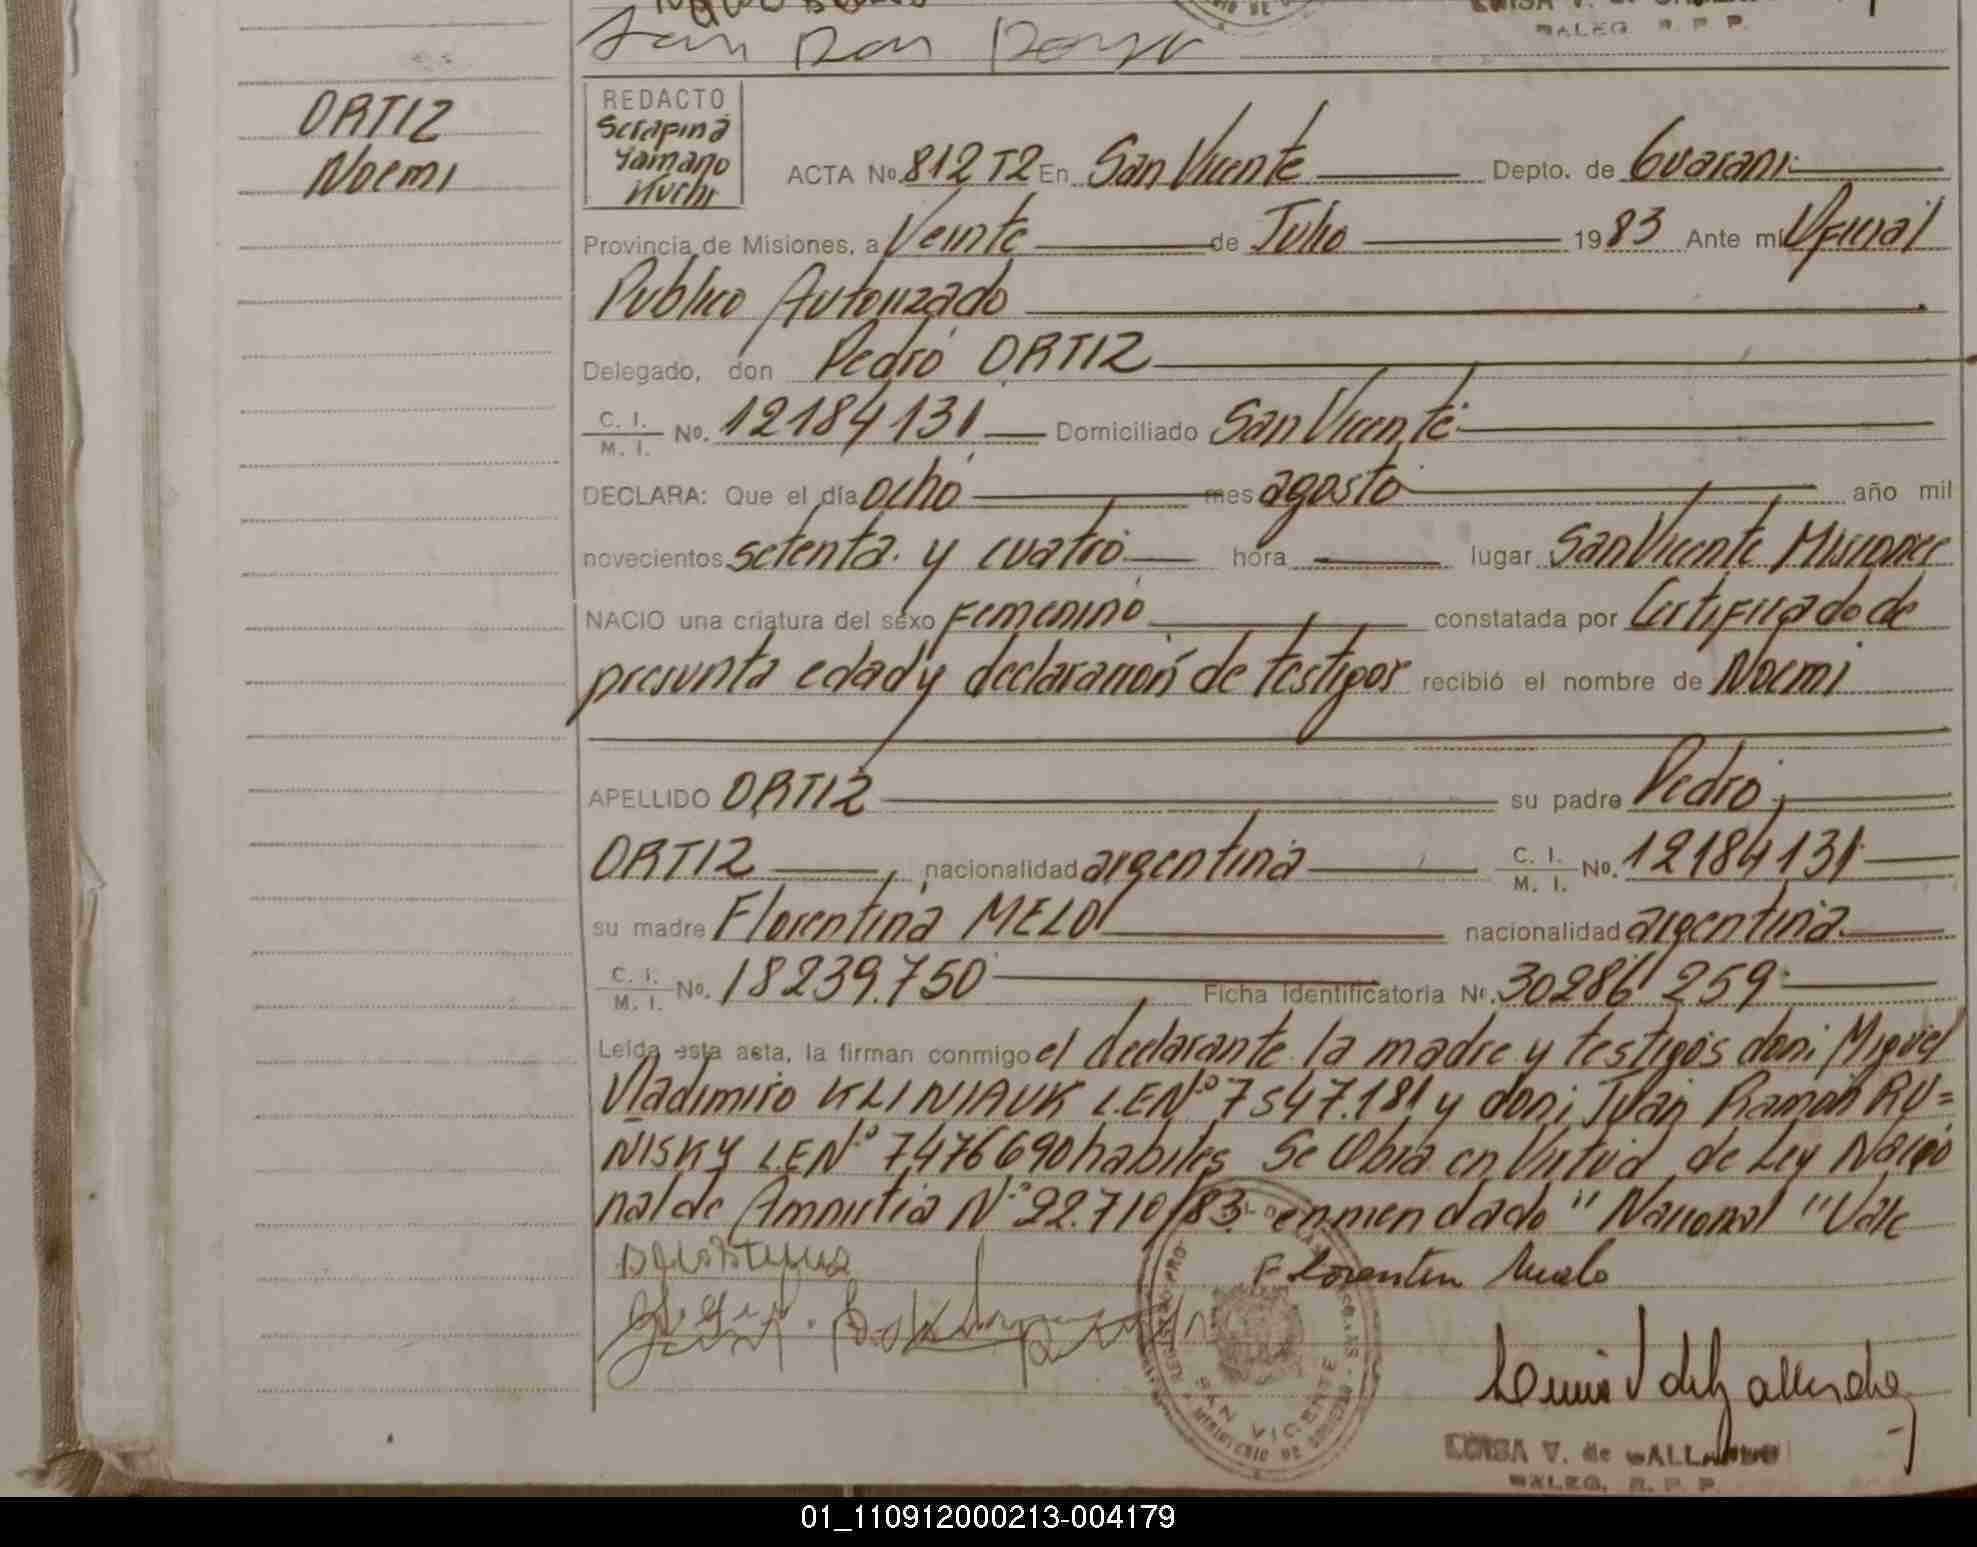 San Ramon
LUISA V. de
DALEG. R. P. P.
ORTIZ
Noemi
REDACTO
Serapina
Yamano
Kuchi
ACTA No. 812 T2 En San Vicente Depto. de Guarani
Provincia de Misiones, a Veinte de Julio 1983 Ante mí Oficial
Publico Autorizado
Delegado, don Pedro ORTIZ
C. I. / M. I. No. 12184131 Domiciliado San Vicente
DECLARA: Que el día ocho mes agosto año mil
novecientos setenta y cuatro hora lugar San Vicente Misiones
NACIO una criatura del sexo Femenino constatada por Certificado de
presunta edad y declaración de testigos recibió el nombre de Noemi
APELLIDO ORTIZ su padre Pedro
ORTIZ, nacionalidad argentina C. I. / M. I. No. 12184131
su madre Florentina MELO nacionalidad argentina
C. I. / M. I. No. 18239.750 Ficha Identificatoria No. 30286 259
Leída esta acta, la firman conmigo el declarante la madre y testigos don: Miguel
Vladimiro KLINIAUK L.E Nº 7547.181 y don: Juan Ramon RU=
NISKY L.E Nº 7476690 habiles Se Obra en Virtud de Ley Nacio
nal de Amnistia Nº 22.710/83. enmendado "Nacional" Vale
Florentin Melo
SAN VICENTE
LUISA V. de GALLARDO
DALEG. R. P. P.
01_110912000213-004179